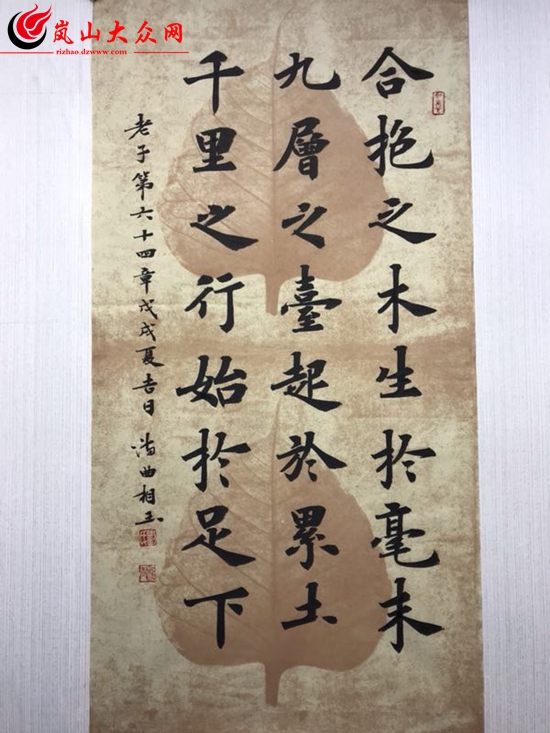 岚山大众网
rizhao.dzwww.com
合抱之木生扵毫末
九層之臺起於累土
千里之行始扵足下
老子第六十四章戊戌夏吉日
曲相玉